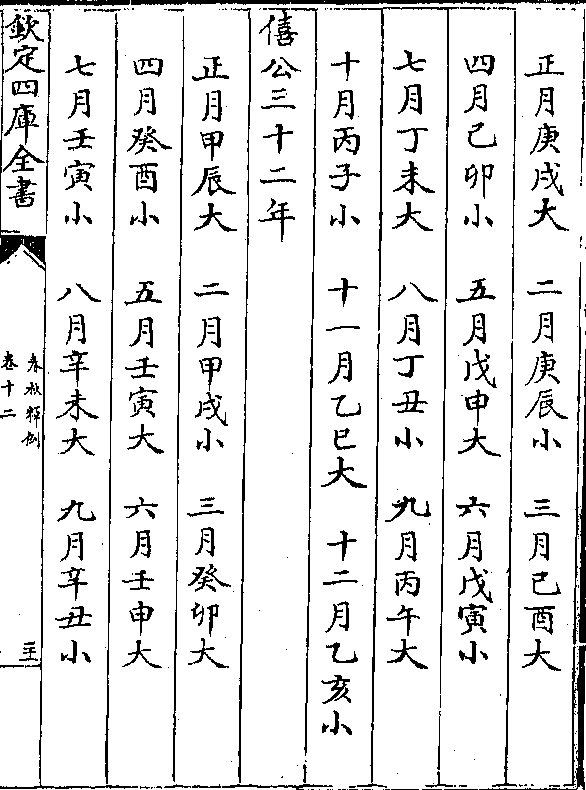 正月庚戌大　二月庚辰小　三月己酉大
四月己卯小　五月戊申大　六月戊寅小
七月丁未大　八月丁丑小　九月丙午大
十月丙子小　十一月乙巳大　十二月乙亥小
僖公三十二年
正月甲辰大　二月甲戌小　三月癸卯大
四月癸酉小　五月壬寅大　六月壬申大
七月壬寅小　八月辛未大　九月辛丑小
欽定四庫全書
春秋釋例
卷十二